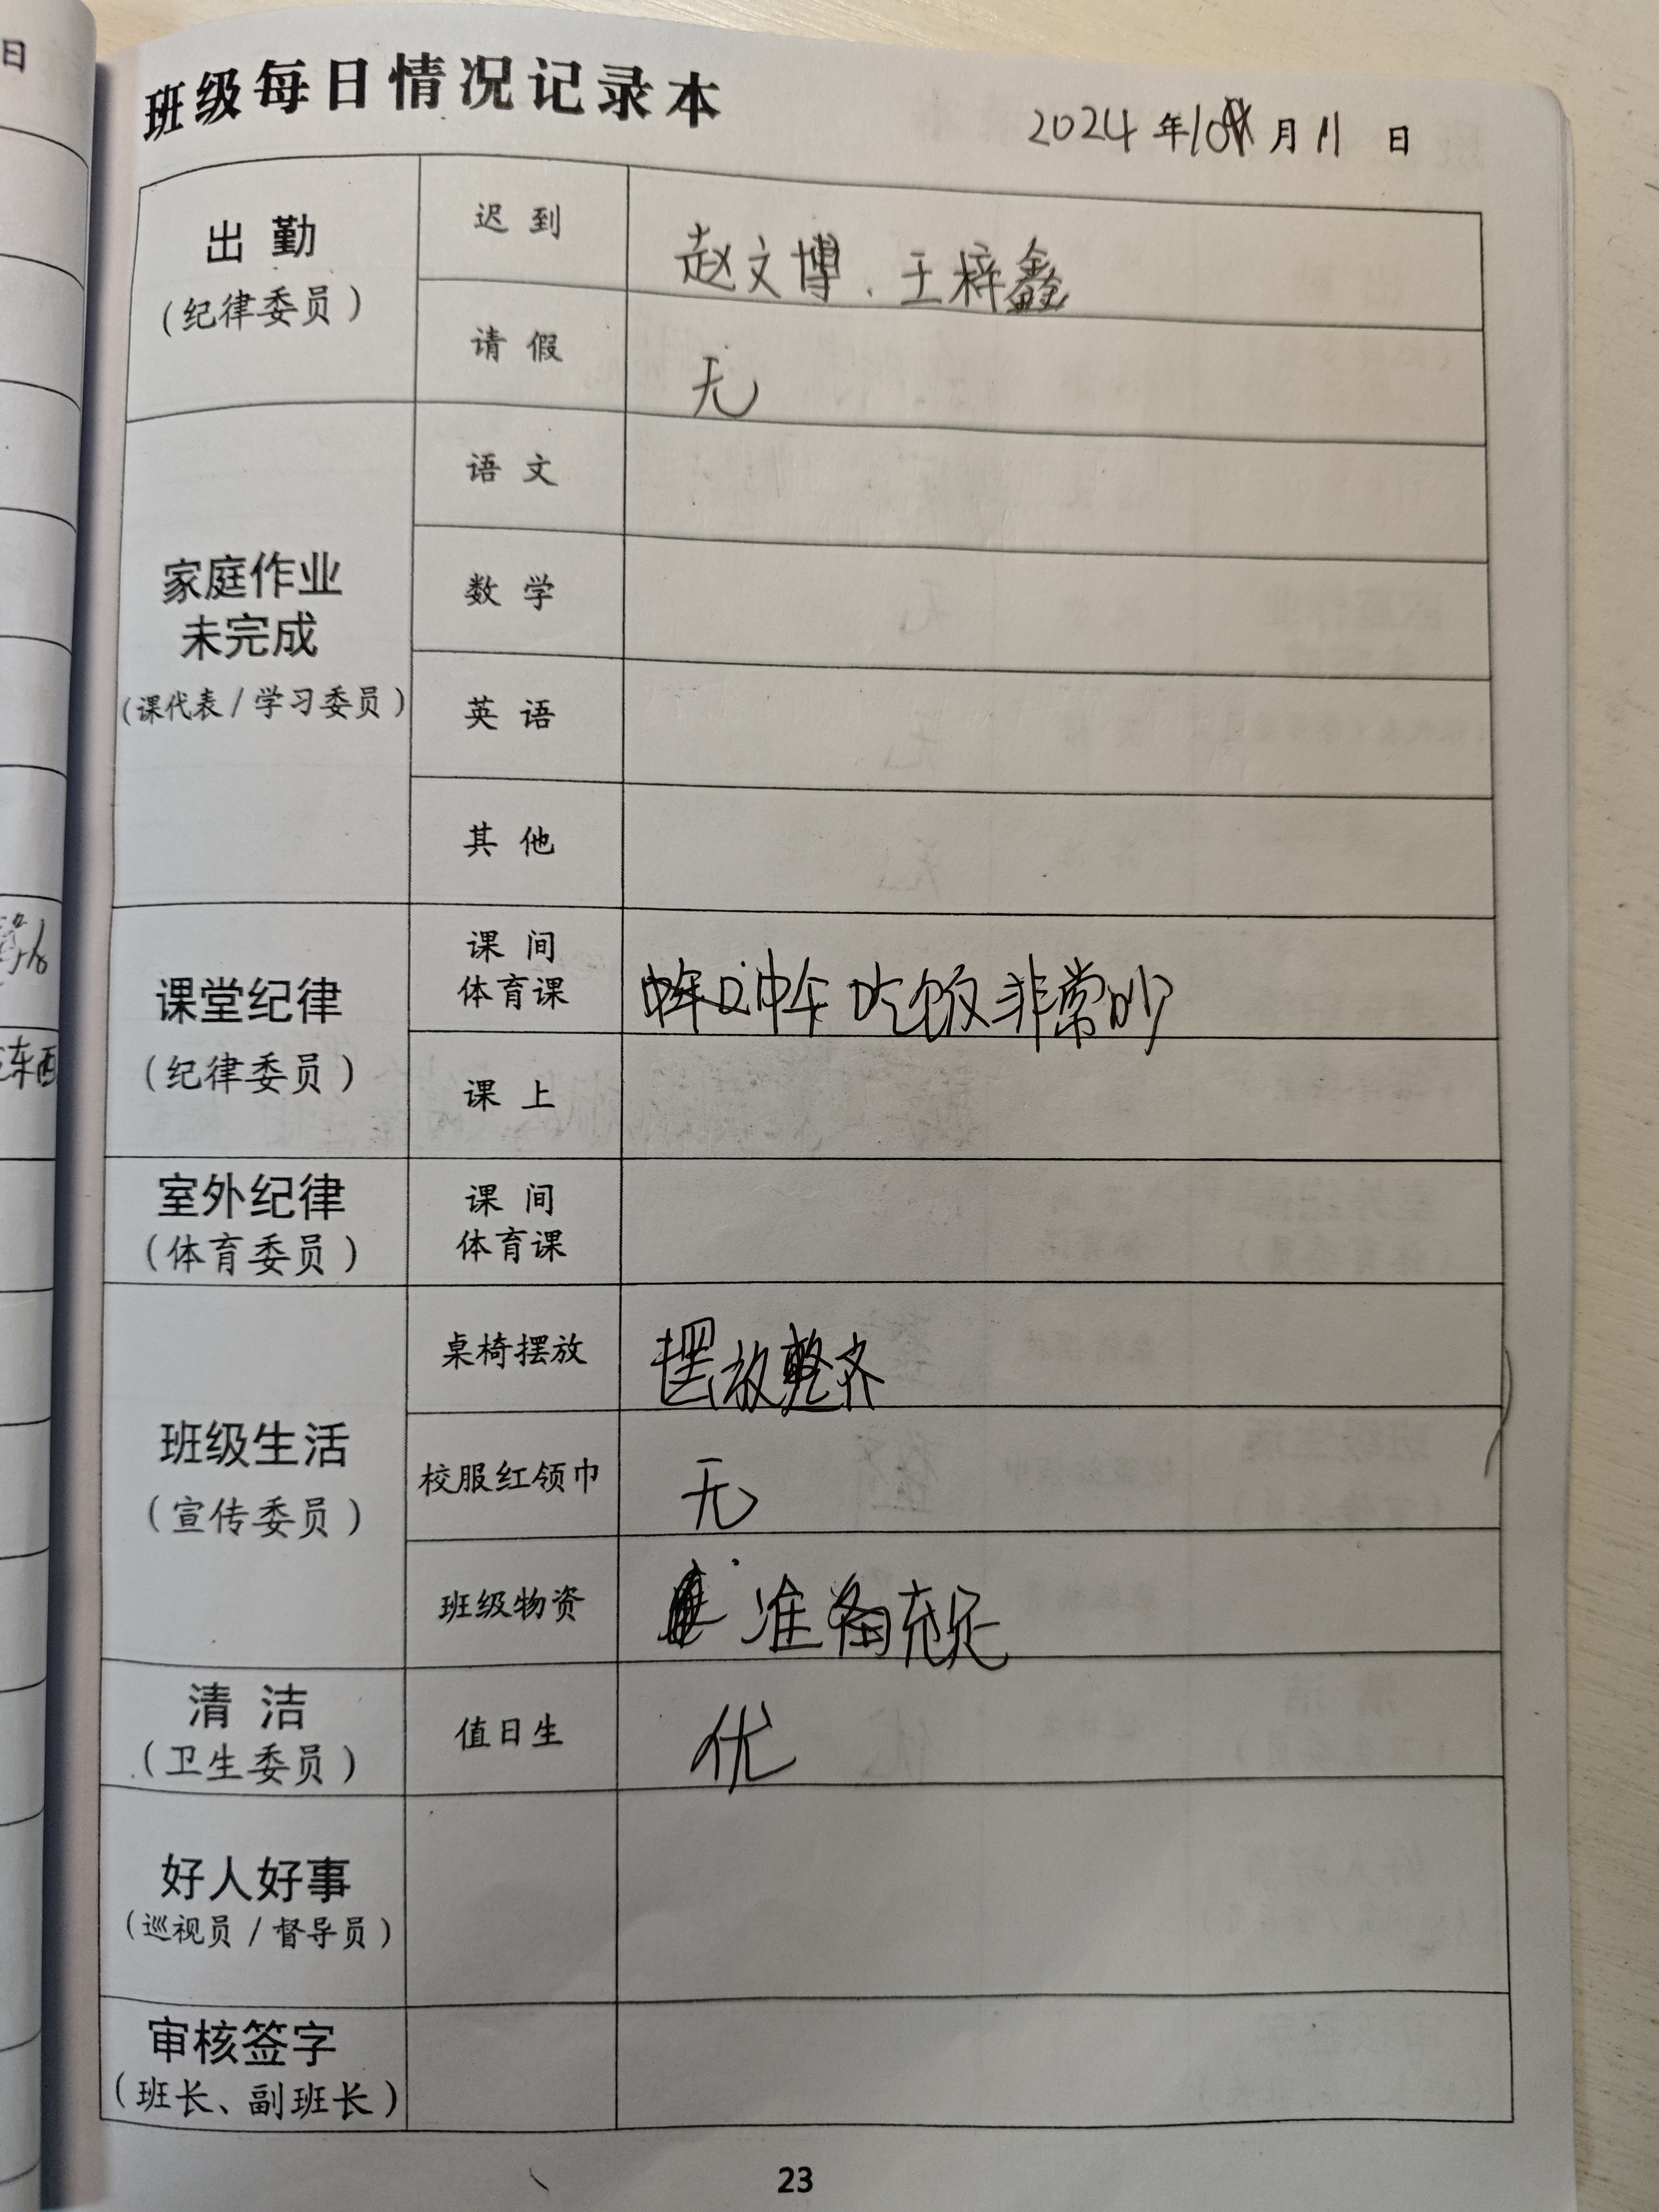 班级每日情况记录本
2024年10月11日
出勤
(纪律委员)
迟到
赵文博、王梓鑫
请假
无
家庭作业
未完成
(课代表/学习委员)
语文
数学
英语
其他
课堂纪律
(纪律委员)
课间
体育课
吃饭非常吵
课上
室外纪律
(体育委员)
课间
体育课
班级生活
(宣传委员)
桌椅摆放
摆放整齐
校服红领巾
无
班级物资
准备充足
清洁
(卫生委员)
值日生
优
好人好事
(巡视员/督导员)
审核签字
(班长、副班长)
23
日
东西